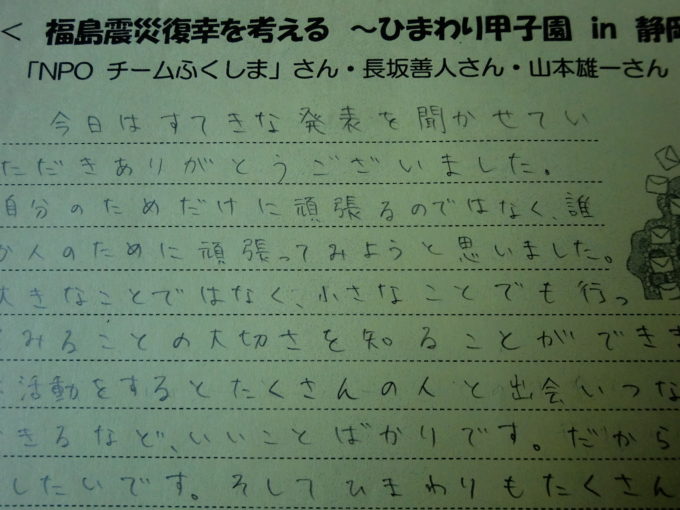 < 福島震災復幸を考える ～ひまわり甲子園 in 静岡
「NPO チームふくしま」さん・長坂善人さん・山本雄一さん
今日はすてきな発表を聞かせてい
ただきありがとうございました。
自分のためだけに頑張るのではなく、誰
か人のために頑張ってみようと思いました。
大きなことではなく、小さなことでも行っ
てみることの大切さを知ることができま
活動をするとたくさんの人と出会いつな
できるなど、いいことばかりです。だから
したいです。そしてひまわりもたくさん